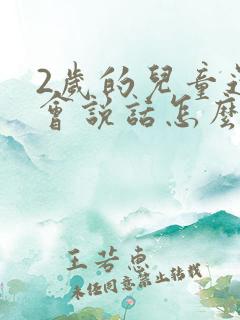 2歲的兒童還
會說話怎麼
王若惠
未经同意禁止转载